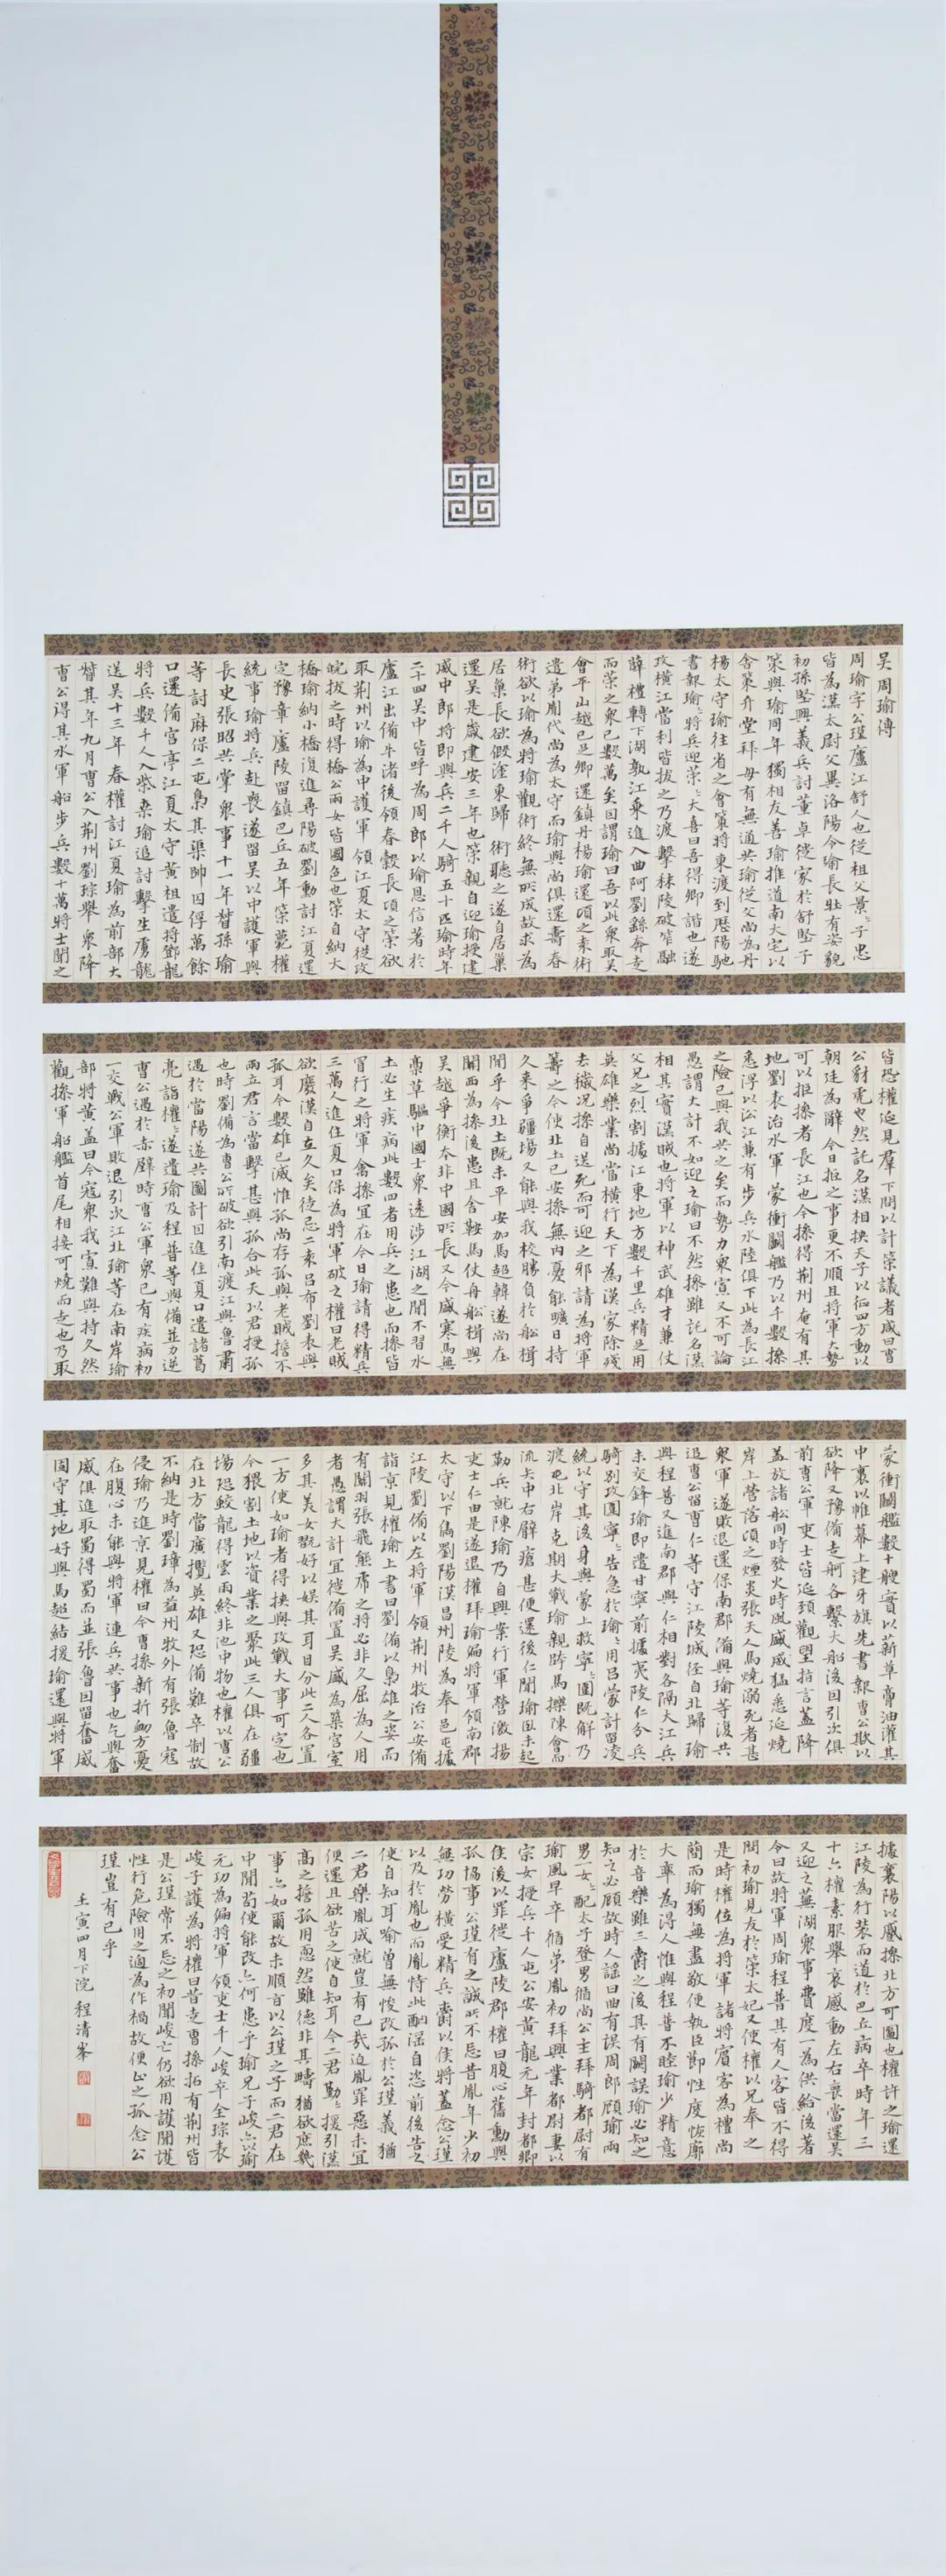 吴周瑜傳
周瑜字公瑾廬江舒人也從祖父景景子忠
皆為漢太尉父異洛陽令瑜長壯有姿貌
初孫堅興義兵討董卓徙家於舒堅子
策與瑜同年獨相友善瑜推道南大宅以
舍策升堂拜母有無通共瑜從父尚為丹
楊太守瑜往省之會策將東渡到歷陽馳
書報瑜瑜將兵迎策策大喜曰吾得卿諧也遂
攻橫江當利皆拔之乃渡擊秣陵破笮融
薛禮轉下湖孰江乘進入曲阿劉繇奔走
而策之衆已數萬矣因謂瑜曰吾以此衆取吴
會平山越已足卿還鎮丹楊瑜還頃之袁術
遣弟胤代尚為太守而瑜與尚俱還壽春
術欲以瑜為將瑜觀術終無所成故求為
居巢長欲假塗東歸術聽之遂自居巢
還吴是歲建安三年也策親自迎瑜授建
威中郎將即與兵二千人騎五十匹瑜時年
二十四吴中皆呼為周郎以瑜恩信著於
廬江出備牛渚後領春穀長頃之策欲
取荆州以瑜為中護軍領江夏太守從攻
皖拔之時得橋公兩女皆國色也策自納大
橋瑜納小橋復進尋陽破劉勳討江夏還
定豫章廬陵留鎮巴丘五年策薨權
統事瑜將兵赴喪遂留吴以中護軍與
長史張昭共掌衆事十一年督孫瑜
等討麻保二屯梟其渠帥囚俘萬餘
口還備宮亭江夏太守黃祖遣將鄧龍
將兵數千人入柴桑瑜追討擊生虜龍
送吴十三年春權討江夏瑜為前部大
督其年九月曹公入荆州劉琮舉衆降
曹公得其水軍船步兵數十萬將士聞之
皆恐權延見羣下問以計策議者咸曰曹
公豺虎也然託名漢相挾天子以征四方動以
朝廷為辭今日拒之事更不順且將軍大勢
可以拒操者長江也今操得荆州奄有其
地劉表治水軍蒙衝鬬艦乃以千數操
悉浮以沿江兼有步兵水陸俱下此為長江
之險已與我共之矣而勢力衆寡又不可論
愚謂大計不如迎之瑜曰不然操雖託名漢
相其實漢賊也將軍以神武雄才兼仗
父兄之烈割據江東地方數千里兵精足用
英雄樂業尚當橫行天下為漢家除殘
去穢况操自送死而可迎之邪請為將軍
籌之今使北土已安操無內憂能曠日持
久來爭疆場又能與我校勝負於船楫
間乎今北土既未平安加馬超韓遂尚在
關西為操後患且舍鞍馬仗舟船楫與
吴越爭衡本非中國所長又今盛寒馬無
藁草驅中國士衆遠涉江湖之間不習水
土必生疾病此數四者用兵之患也而操皆
冒行之將軍禽操宜在今日瑜請得精兵
三萬人進住夏口保為將軍破之權曰老賊
欲廢漢自立久矣徒忌二袁呂布劉表與
孤耳今數雄已滅惟孤尚存孤與老賊誓不
兩立君言當擊甚與孤合此天以君授孤
也時劉備為曹公所破欲引南渡江與魯肅
遇於當陽遂共圖計因進住夏口遣諸葛
亮詣權權遂遣瑜及程普等與備并力逆
曹公遇於赤壁時曹公軍衆已有疾病初
一交戰公軍敗退引次江北瑜等在南岸瑜
部將黃蓋曰今寇衆我寡難與持久然
觀操軍船艦首尾相接可燒而走也乃取
蒙衝鬬艦數十艘實以薪草膏油灌其
中裹以帷幕上建牙旗先書報曹公欺以
欲降又豫備走舸各繫大船後因引次俱
前曹公軍吏士皆延頸觀望指言蓋降
蓋放諸船同時發火時風盛猛悉延燒
岸上營落頃之煙炎張天人馬燒溺死者甚
衆軍遂敗退還保南郡備與瑜等復共
追曹公留曹仁等守江陵城徑自北歸瑜
與程普又進南郡與仁相對各隔大江兵
未交鋒瑜即遣甘寧前據夷陵仁分兵
騎别攻圍寧寧告急於瑜瑜用吕蒙計留凌
統以守其後身與蒙上救寧寧圍既解乃
渡屯北岸克期大戰瑜親跨馬擽陳會為
流矢中右脅瘡甚便還後仁聞瑜臥未起
勒兵就陳瑜乃自興案行軍營激揚
吏士仁由是遂退權拜瑜偏將軍領南郡
太守以下雋劉陽漢昌州陵為奉邑屯據
江陵劉備以左將軍領荆州牧治公安備
詣京見權瑜上書曰劉備以梟雄之姿而
有關羽張飛熊虎之將必非久屈為人用
者愚謂大計宜徙備置吴盛為築宮室
多其美女翫好以娱其耳目分此二人各置
一方使如瑜者得挾與攻戰大事可定也
今猥割土地以資業之聚此三人俱在疆
場恐蛟龍得雲雨終非池中物也權以曹公
在北方當廣攬英雄又恐備難卒制故
不納是時劉璋為益州牧外有張魯寇
侵瑜乃進京見權曰今曹操新折衂方憂
在腹心未能與將軍連兵共事也乞與奮
威俱進取蜀得蜀而並張魯因留奮威
固守其地好與馬超結援瑜還與將軍
據襄陽以蹙操北方可圖也權許之瑜還
江陵為行裝而道於巴丘病卒時年三
十六權素服舉哀感動左右喪當還吴
又迎之蕪湖衆事費度一為供給後著
令曰故將軍周瑜程普其有人客皆不得
問初瑜見友於策太妃又使權以兄奉之
是時權位為將軍諸將賓客為禮尚
簡而瑜獨無盡敬便執臣節性度恢廓
大率為得人惟與程普不睦瑜少精意
於音樂雖三爵之後其有闕誤瑜必知之
知之必顧故時人謠曰曲有误周郎顧瑜兩
男一女女配太子登男循尚公主拜騎都尉有
瑜風早卒循弟胤初拜興業都尉妻以
宗女授兵千人屯公安黃龍元年封都鄉
侯後以罪徙廬陵郡權曰腹心舊勳與
孤協事公瑾有之誠所不忘昔胤年少初
無功勞橫受精兵爵以侯將蓋念公瑾
以及於胤也而胤恃此酗淫自恣前後告之
使自知耳喻曾無悛改孤於公瑾義猶
二君樂胤成就豈有已哉迫胤罪惡未宜
便還且欲苦之使自知耳今二君勤勤援引漢
高之誓孤用恧然雖德非其疇猶欲庶幾
事亦如爾故未順旨以公瑾之子而二君在
中間苟使能改亦何患乎瑜兄子峻亦以瑜
元功為偏將軍領吏士千人峻卒全琮表
峻子護為將權曰昔走曹操拓有荆州皆
是公瑾常不忘之初聞峻亡仍欲用護聞護
性行危險用之適為作禍故便止之孤念公
瑾豈有已乎
壬寅四月下浣程清峯